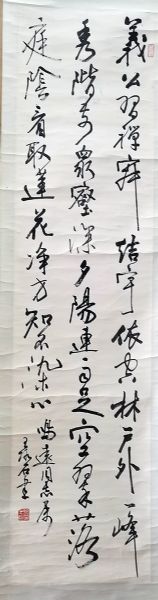 義公習禪寂結宇依空林戶外一峰
秀階前眾壑深夕陽連雨足空翠落
庭陰看取蓮花淨方知不染心 鳴遠同志屬